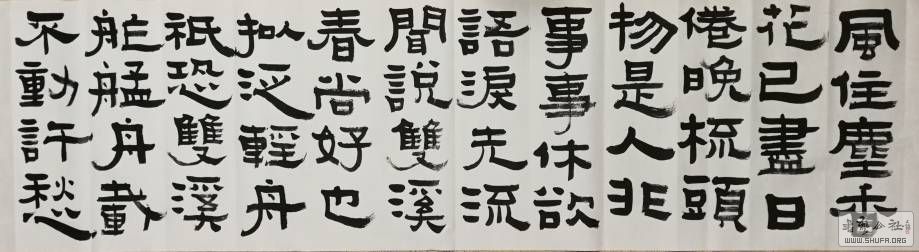 風住塵香
花已盡日
倦晚梳頭
物是人非
事事休欲
語淚先流
聞說雙溪
春尚好也
拟泛輕舟
祇恐雙溪
舴艋舟載
不動許愁
WWW.SHUFA.ORG